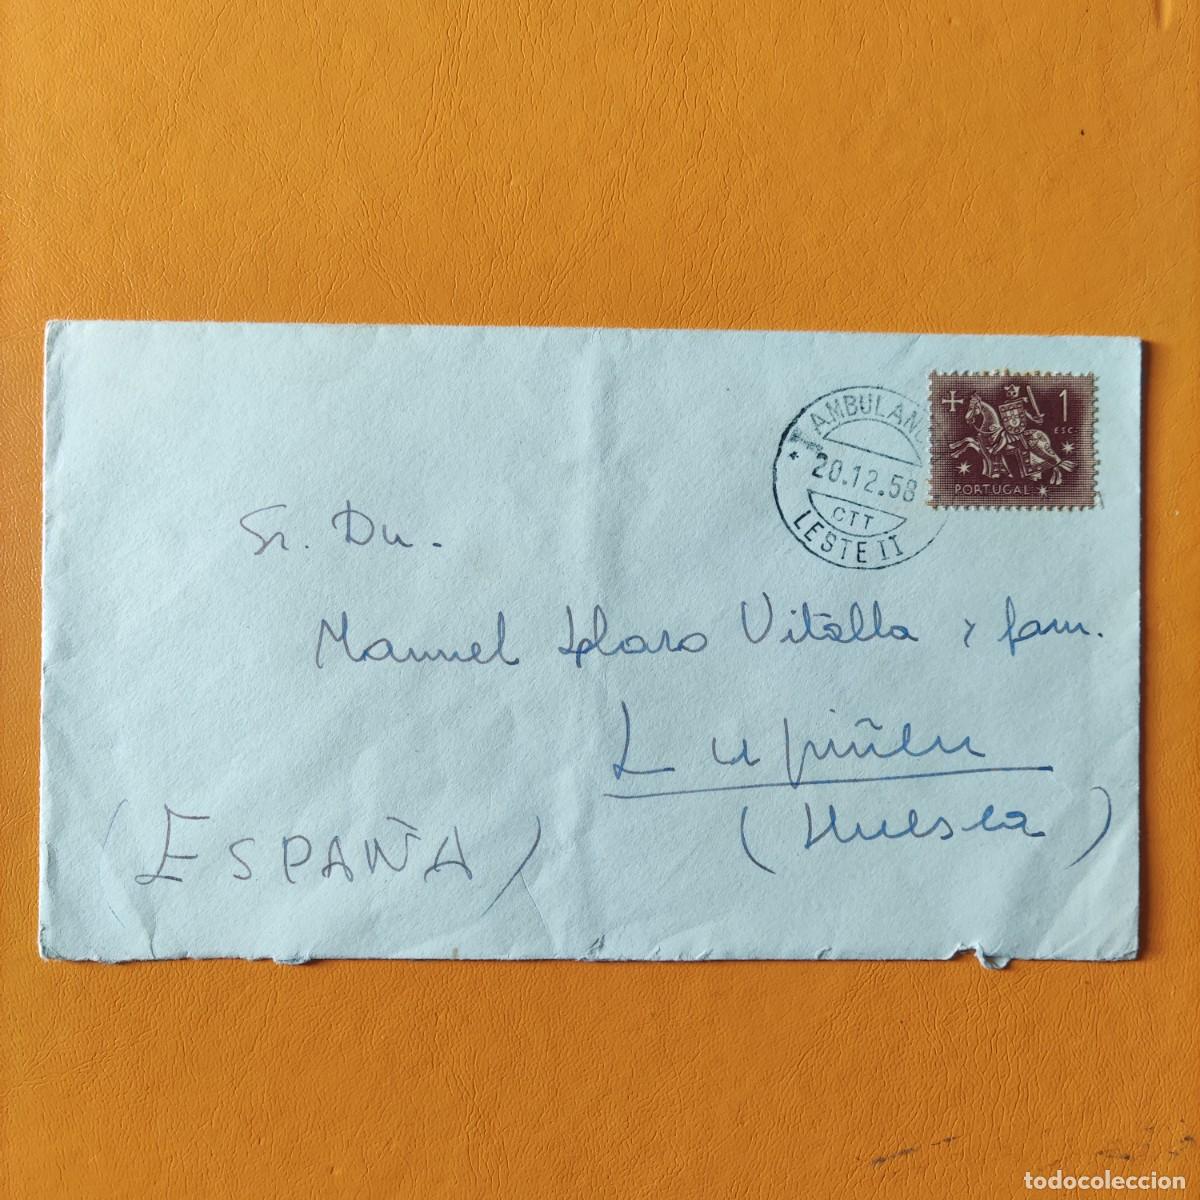 AMBULANC
20.12.58
CTT
LESTE II
1
ESC.
PORTUGAL
Sr. Dn.
Manuel Vitalla y fam.
Lupiñen
(Huesca)
(ESPAÑA)
todocoleccion